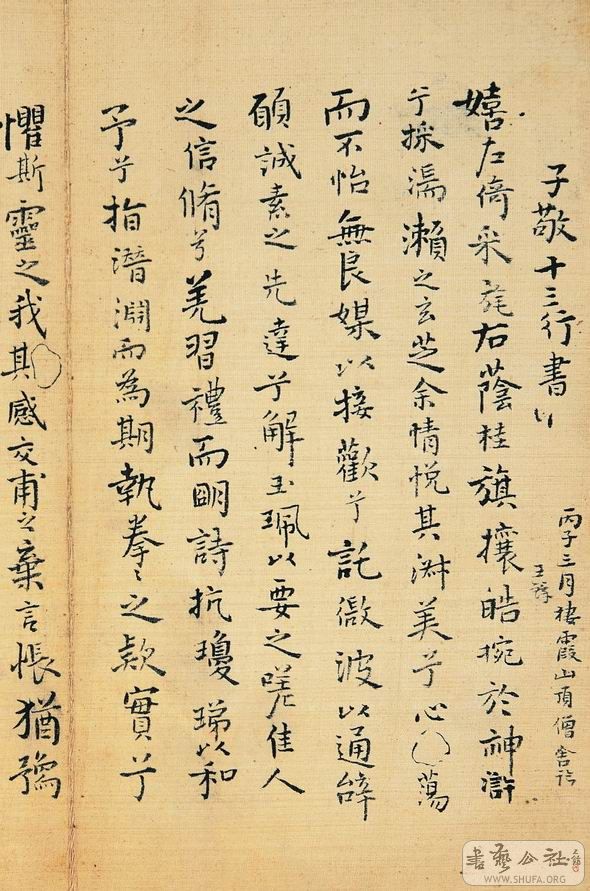 子敬十三行書
丙子三月棲霞山頂僧舍
王鐸
嬉左倚采旄右蔭桂旗攘皓捥於神滸
兮採湍瀨之玄芝余情悅其淑美兮心蕩
而不怡無良媒以接歡兮託微波以通辭
願誠素之先達兮解玉珮以要之嗟佳人
之信脩兮羌習禮而明詩抗瓊珶以和
予兮指潛淵而為期執拳〻之款實兮
懼斯靈之我其感交甫之棄言悵猶豫
書藝公社
WWW.SHUFA.ORG